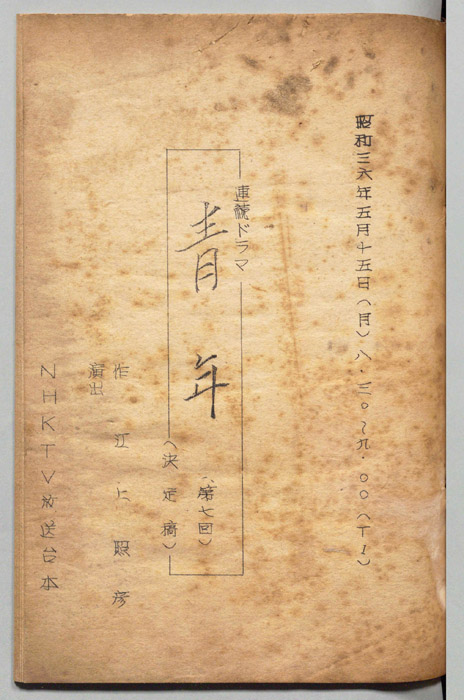 昭和三六年五月十五日（月）八.三〇〜九.〇〇（T1）
連続ドラマ
青年
（第七回）
（決定稿）
作 江上照彦
演出
NHKTV放送台本